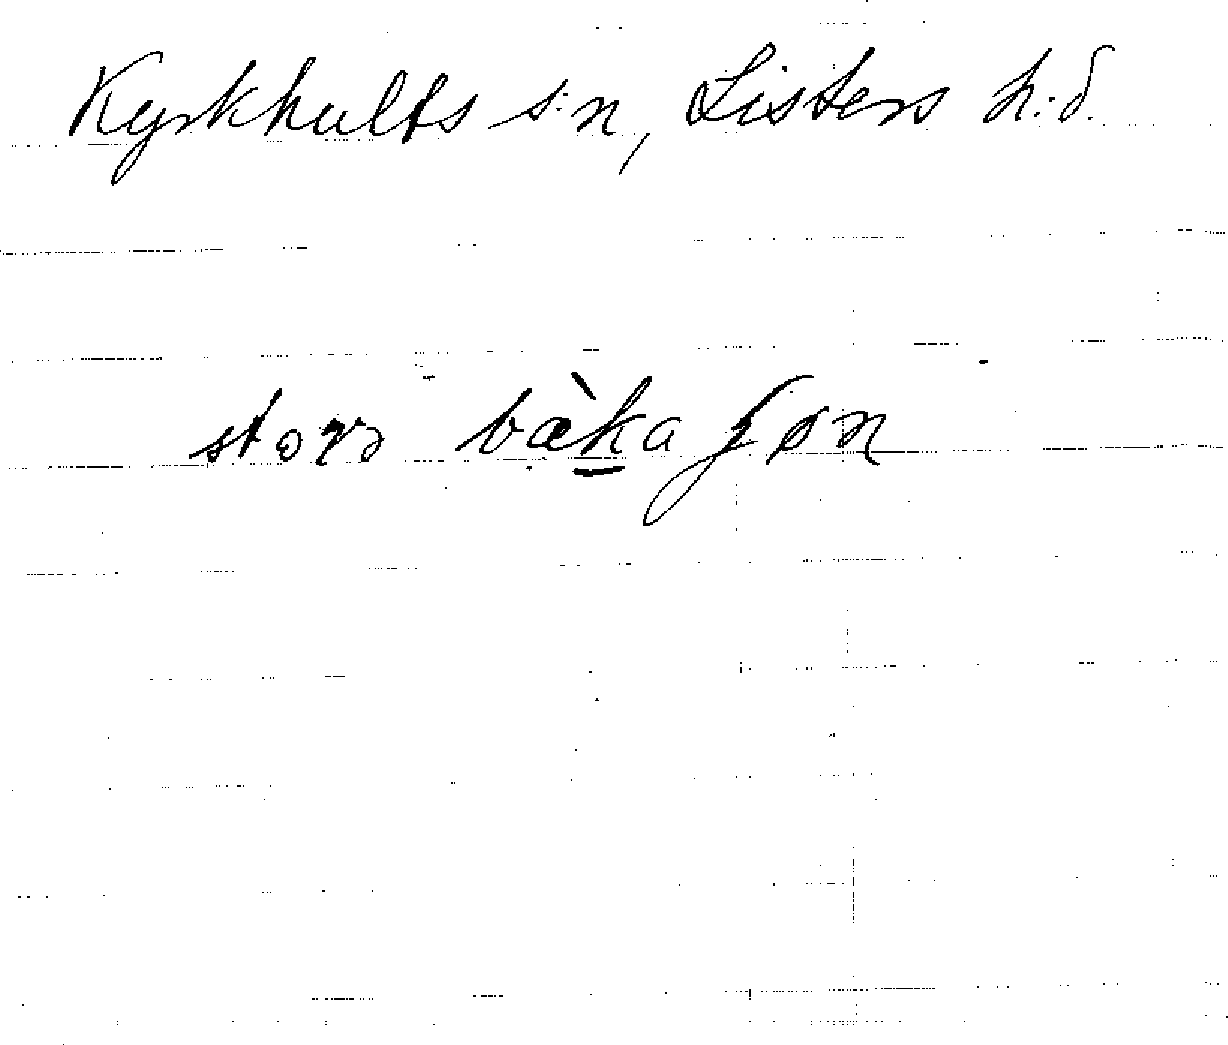 Kyrkhults s:n, Listers h:d.
storə bæ̀ka ʃøn